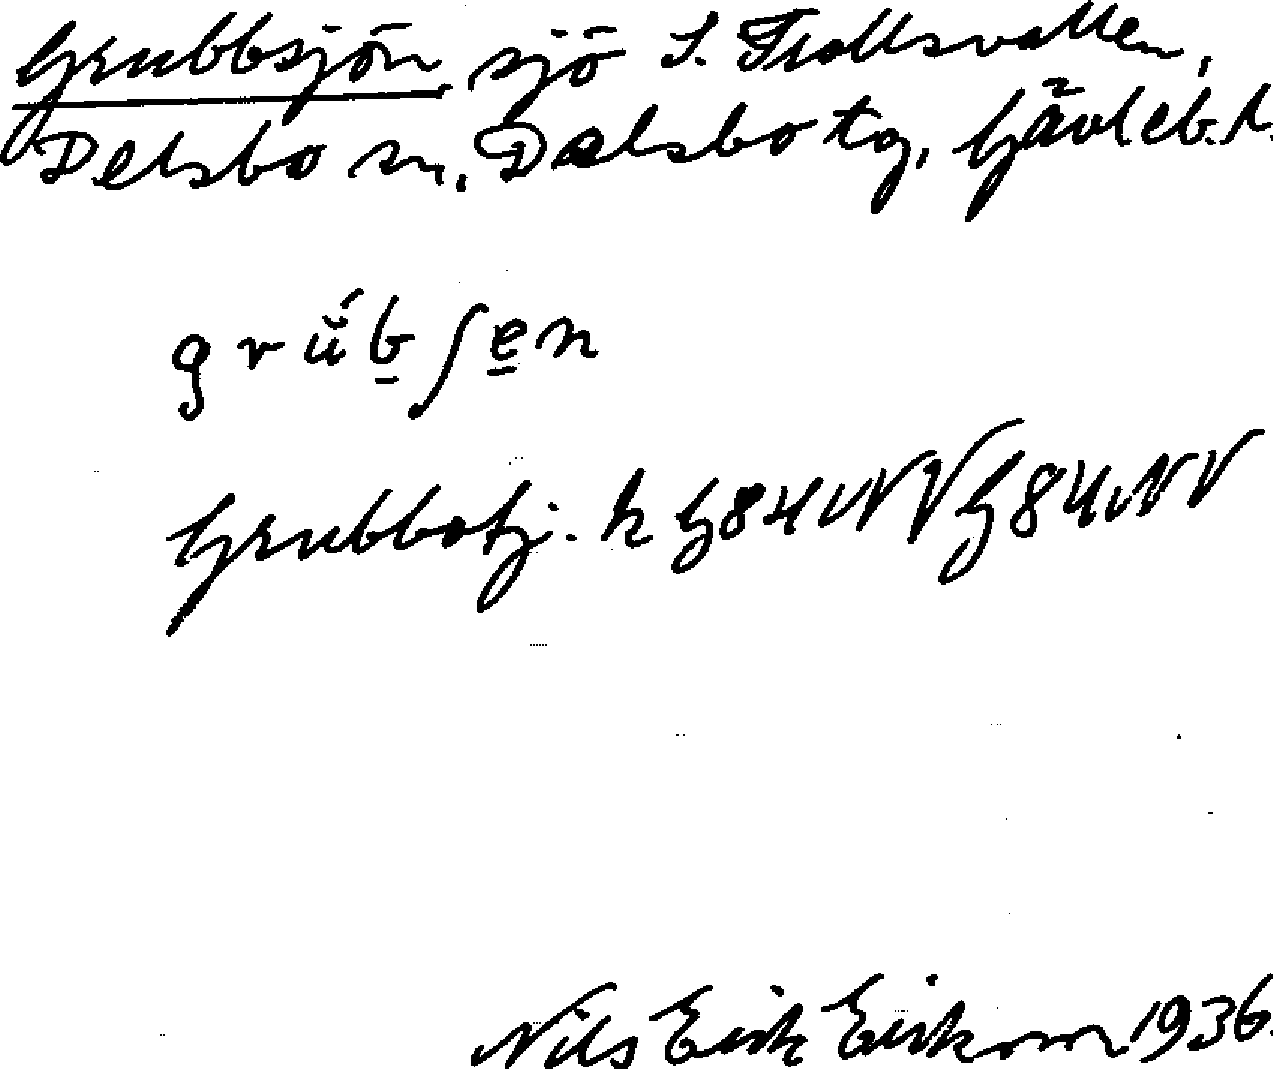 Grubbsjön sjö S. Trollsvallen,
Delsbo sn, Delsbo tg, Gävleb. l.
grŭ́b̲ʃe̲n
Grubbatj. k G 84 NV G 84 NV
Nils Erik Erikson 1936.